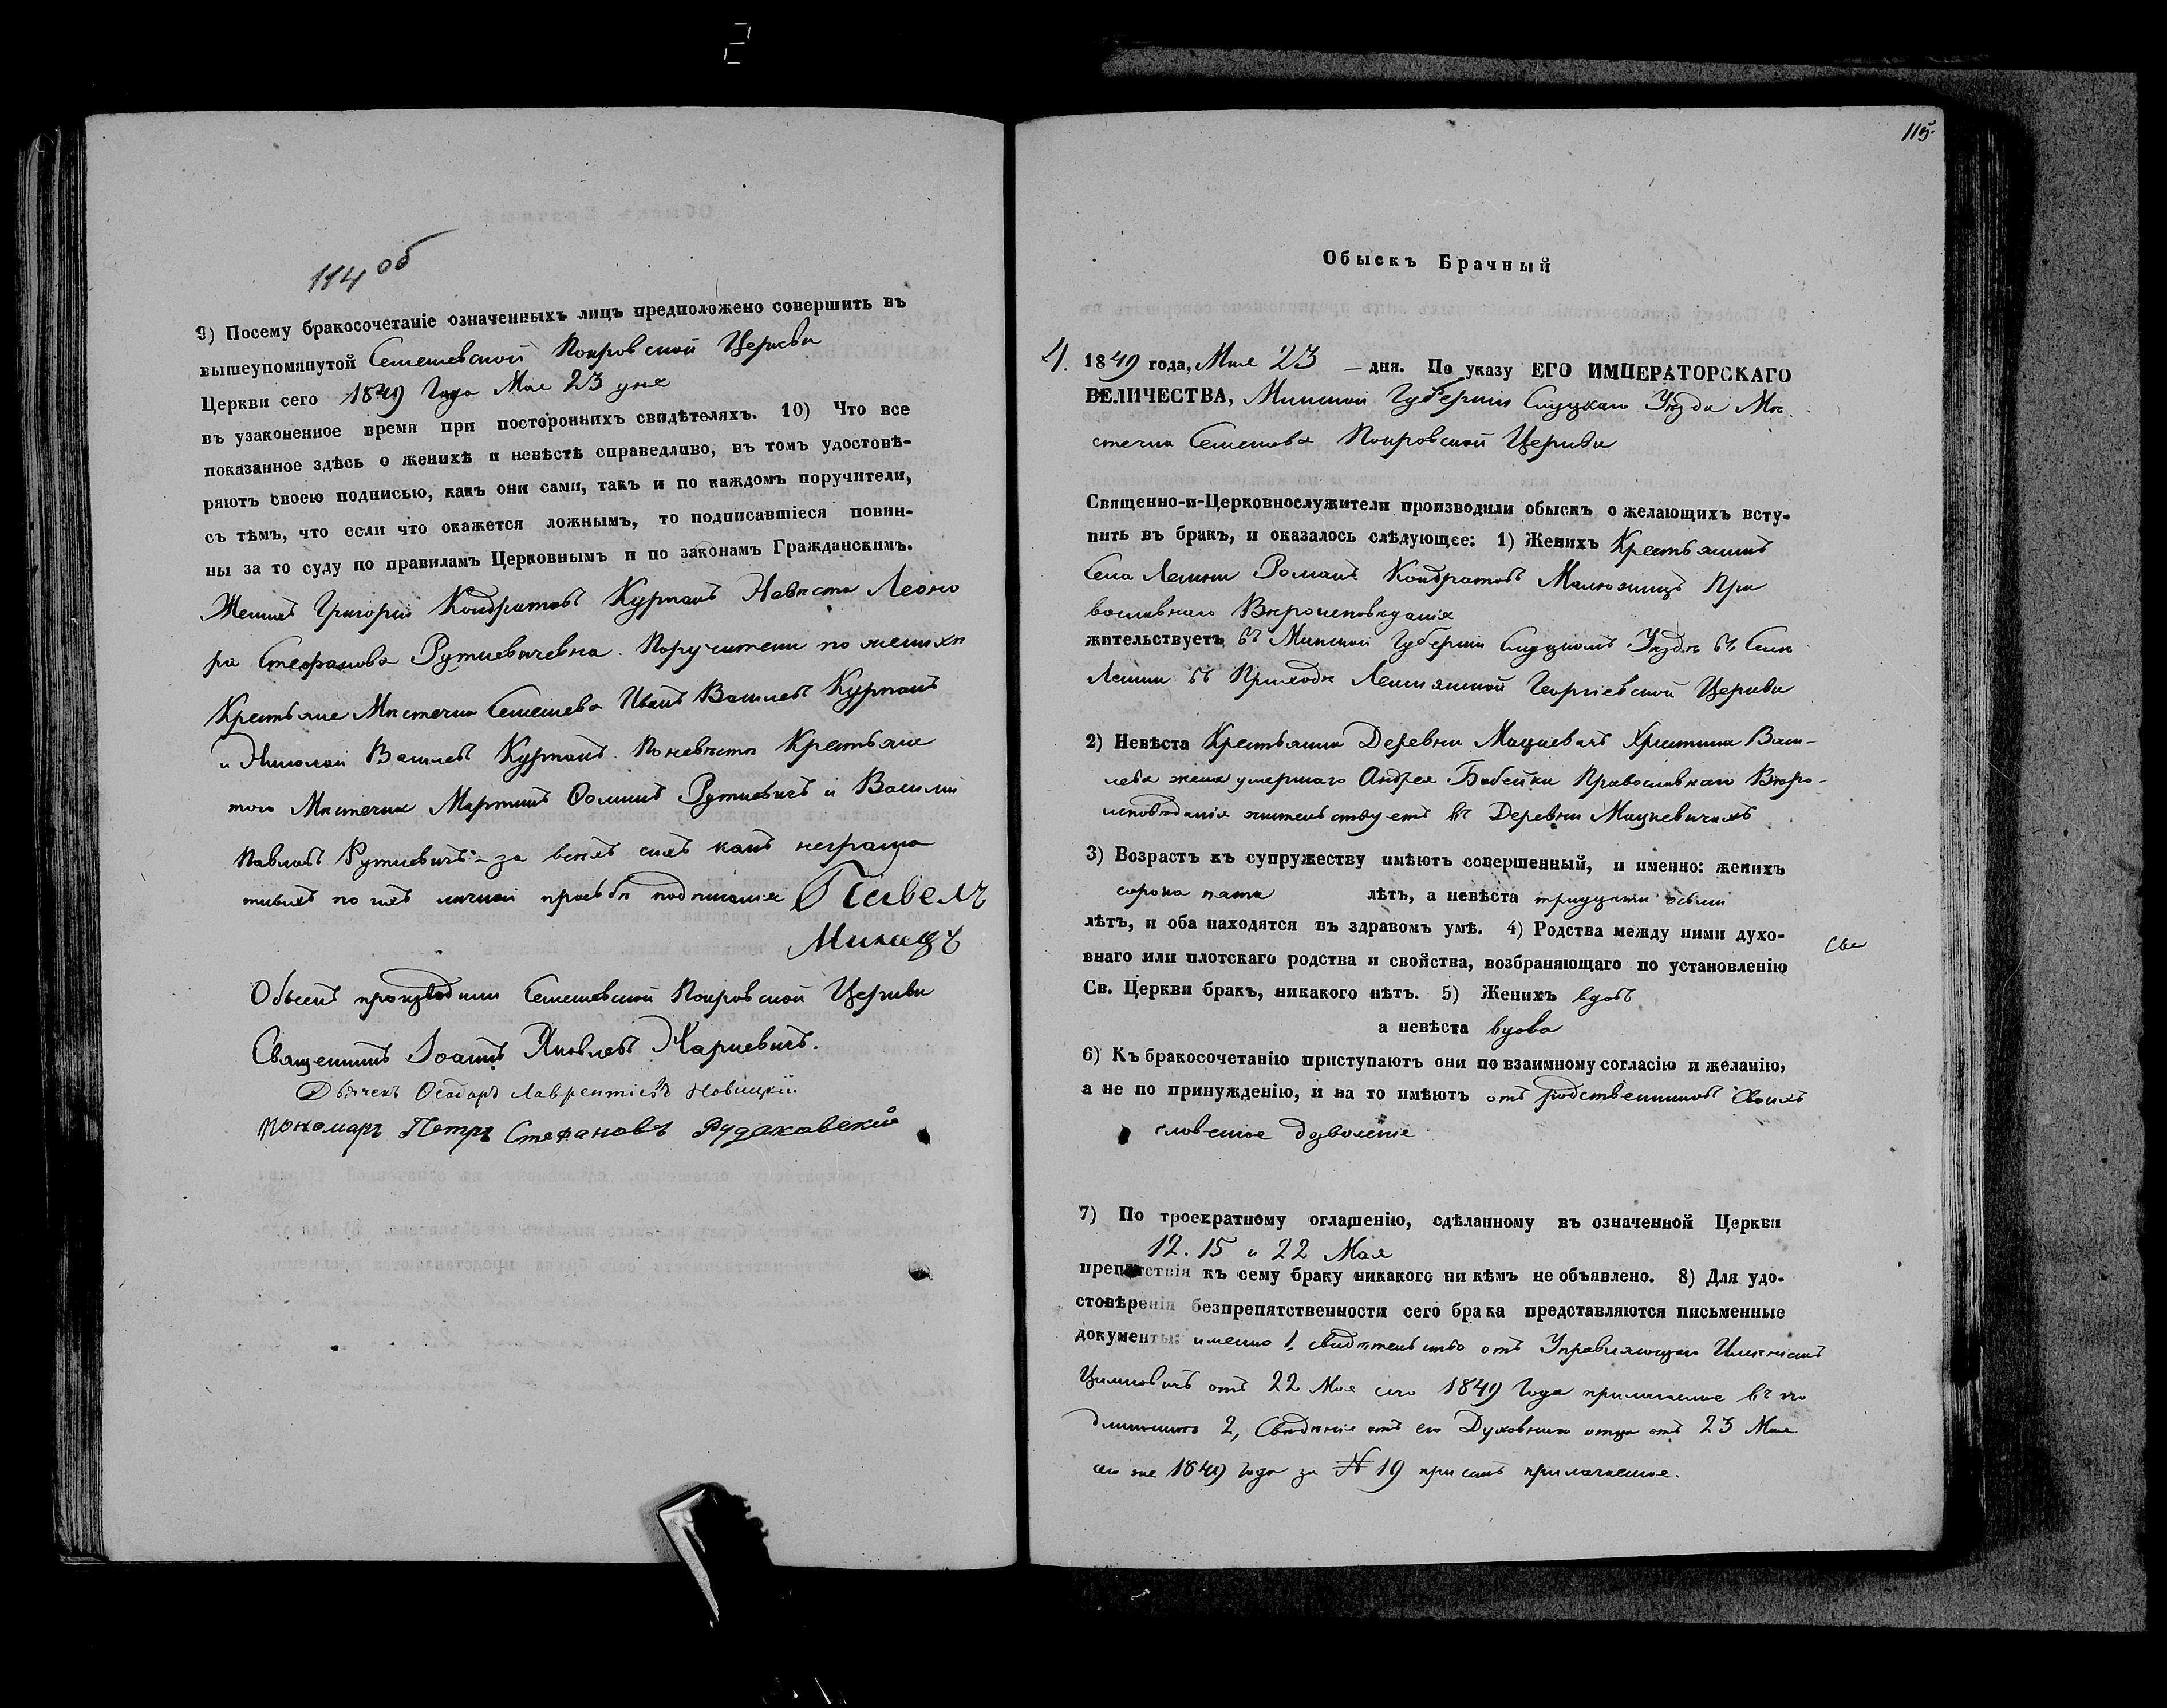 114 об
9) Посему бракосочетаніе означенныхъ лицъ предположено совершить въ
вышеупомянутой Семежевской Покровской Церкви
Церкви сего 1849 Года Мая 23 дня
въ узаконенное время при постороннихъ свидѣтеляхъ. 10) Что все
показанное здѣсь о женихѣ и невѣстѣ справедливо, въ томъ удостовѣ-
ряютъ своею подписью, какъ они сами, такъ и по каждомъ поручители,
съ тѣмъ, что если что окажется ложнымъ, то подписавшіеся повин-
ны за то суду по правиламъ Церковнымъ и по законамъ Гражданскимъ.
Женихъ Григорій Кондратовъ Курманъ Невѣста Леоно
ра Стефанова Руткевичевна. Поручители по женихѣ
Крестьяне Мѣстечка Семежева Иванъ Васильевъ Курманъ
и Николай Васильевъ Курманъ. По невѣстѣ Крестьяне
того Мѣстечка Мартинъ Фоминъ Руткевичъ и Василій
Павловъ Руткевичъ - за всѣхъ сихъ какъ неграмо
тныхъ по ихъ личной просьбѣ подписался Павелъ
Обыскъ производили Семежевской Покровской Церкви
Священникъ Іоаннъ Яковлевъ Харкевичъ.
Дьячекъ Ѳеодоръ Лаврентіевъ Новицкій
Пономарь Петръ Стефановъ Рудаковскій
115.
Обыскъ Брачный
4. 1849 года, Мая 23 – дня. По указу ЕГО ИМПЕРАТОРСКАГО
ВЕЛИЧЕСТВА, Минской Губерніи Слуцкаго Уѣзда Мѣ
стечка Семежева Покровской Церкви
Священно-и-Церковнослужители производили обыскъ о желающихъ всту-
пить въ бракъ, и оказалось слѣдующее: 1) Женихъ Крестьянинъ
Села Лешни Романъ Кондратовъ Пра
вославнаго Вѣроисповѣданія
жительствуетъ въ Минской Губерніи Слуцкомъ Уѣздѣ въ Селѣ
Лешни въ Приходѣ Лешнянской Георгіевской Церкви
2) Невѣста Крестьянка Деревни Мацкевичъ Христина Васи-
льева жена умершаго Андрея Бабейки Православнаго Вѣро-
исповѣданія жительствуетъ въ Деревни Мацкевичахъ
3) Возрастъ къ супружеству имѣютъ совершенный, и именно: женихъ
сорока пяти лѣтъ, а невѣста тридцати осьми
лѣтъ, и оба находятся въ здравомъ умѣ. 4) Родства между ними духо-
внаго или плотскаго родства и свойства, возбраняющаго по установленію
Св. Церкви бракъ, никакого нѣтъ. 5) Женихъ вдовъ
а невѣста вдова
6) Къ бракосочетанію приступаютъ они по взаимному согласію и желанію,
а не по принужденію, и на то имѣютъ отъ родственниковъ своихъ
словесное дозволеніе
7) По троекратному оглашенію, сдѣланному въ означенной Церкви
12. 15 и 22 Мая
препятствія къ сему браку никакого ни кѣмъ не объявлено. 8) Для удо-
стовѣренія безпрепятственности сего брака представляются письменные
документы: именно 1, свидѣтельство отъ Управляющаго Имѣніемъ
отъ 22 Мая сего 1849 Года прилагаемое въ по
длинникѣ 2, Свѣдѣніе отъ его Духовнаго отца отъ 23 Мая
сего же 1849 Года за № 19 при семъ прилагаемое.